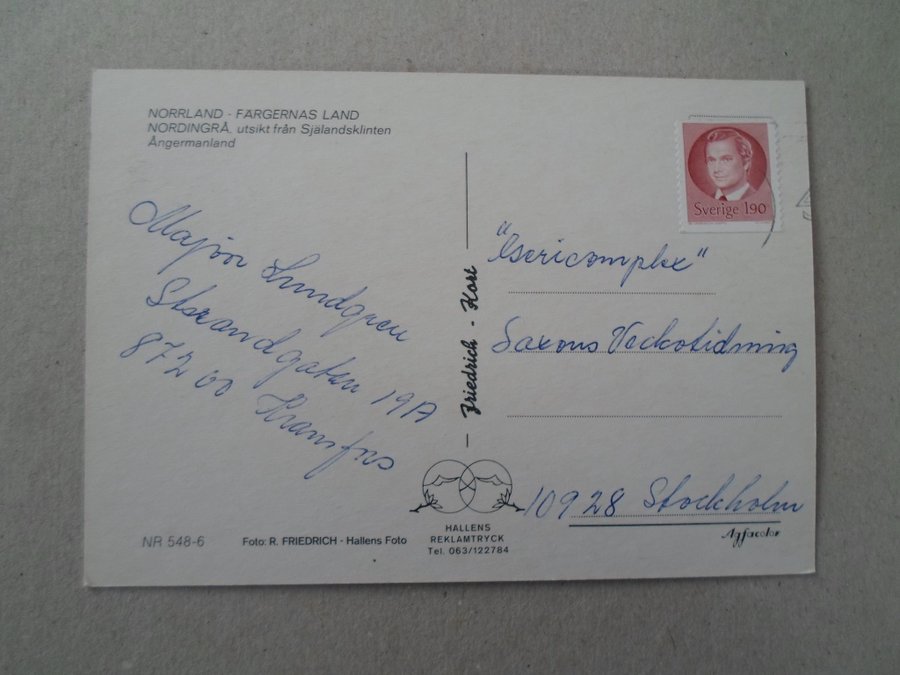 NORRLAND - FÄRGERNAS LAND
NORDINGRÅ, utsikt från Själandsklinten
Ångermanland
Major Lundgren
Strandgatan 19A
872 00 Kramfors
NR 548-6
Foto: R. FRIEDRICH - Hallens Foto
Friedrich - Kort
HALLENS
REKLAMTRYCK
Tel. 063/122784
Sverige 190
Saxons Veckotidning
10928 Stockholm
Agfacolor